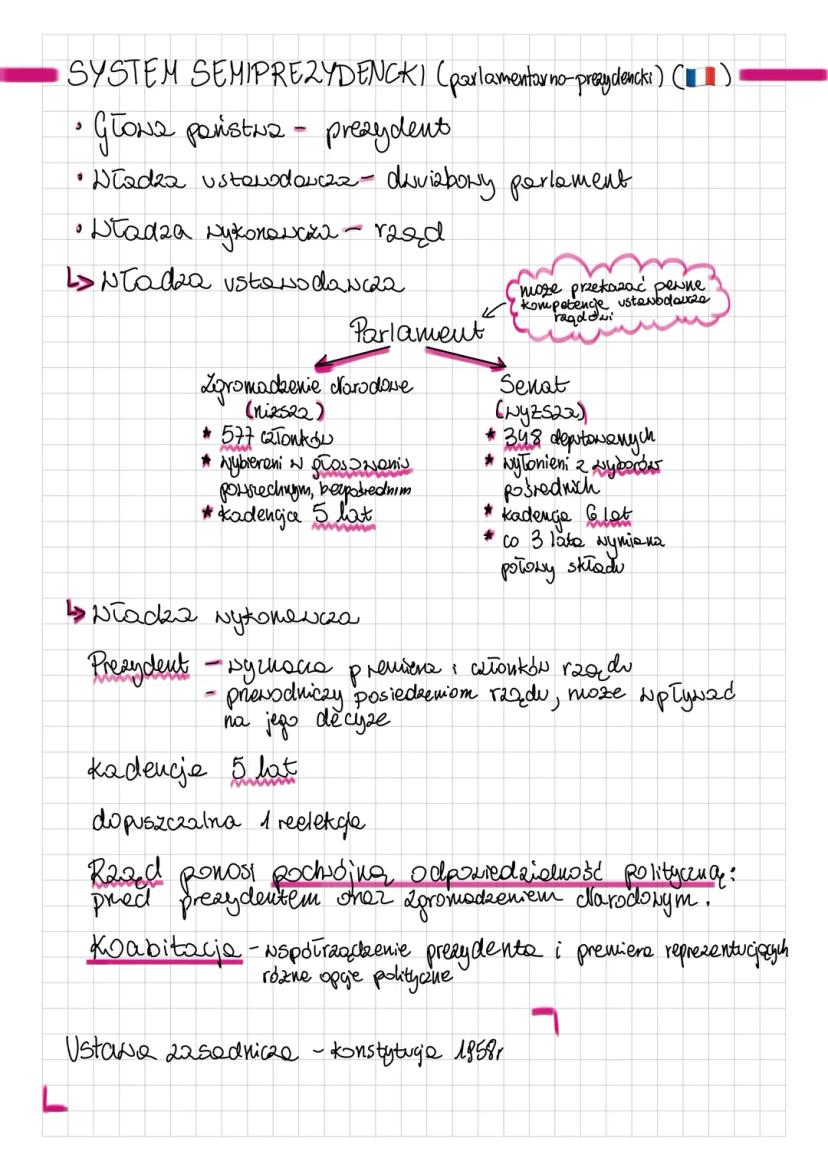 SYSTEM SEMIPREZYDENCKI (parlamentarno-prezydencki) (🇫🇷)
• Głowa państwa – prezydent
• Władza ustawodawcza – dwuizbowy parlament
• Władza wykonawcza – rząd
↳ Władza ustawodawcza
może przekazać pewne
kompetencje ustawodawcze
rządowi
Parlament
Zgromadzenie Narodowe
(niższa)
* 577 członków
* wybierani w głosowaniu
powszechnym, bezpośrednim
* kadencja 5 lat
Senat
(wyższa)
* 348 deputowanych
* wyłonieni z wyborów
pośrednich
* kadencja 6 lat
* co 3 lata wymiana
połowy składu
↳ Władza wykonawcza
Prezydent – wyznacza premiera i członków rządu
– przewodniczy posiedzeniom rządu, może wpływać
na jego decyzje
kadencja 5 lat
dopuszczalna 1 reelekcja
Rząd ponosi podwójną odpowiedzialność polityczną:
przed prezydentem oraz zgromadzeniem Narodowym.
Koabitacja – współrządzenie prezydenta i premiera reprezentujących
różne opcje polityczne
Ustawa zasadnicza – konstytucja 1958r